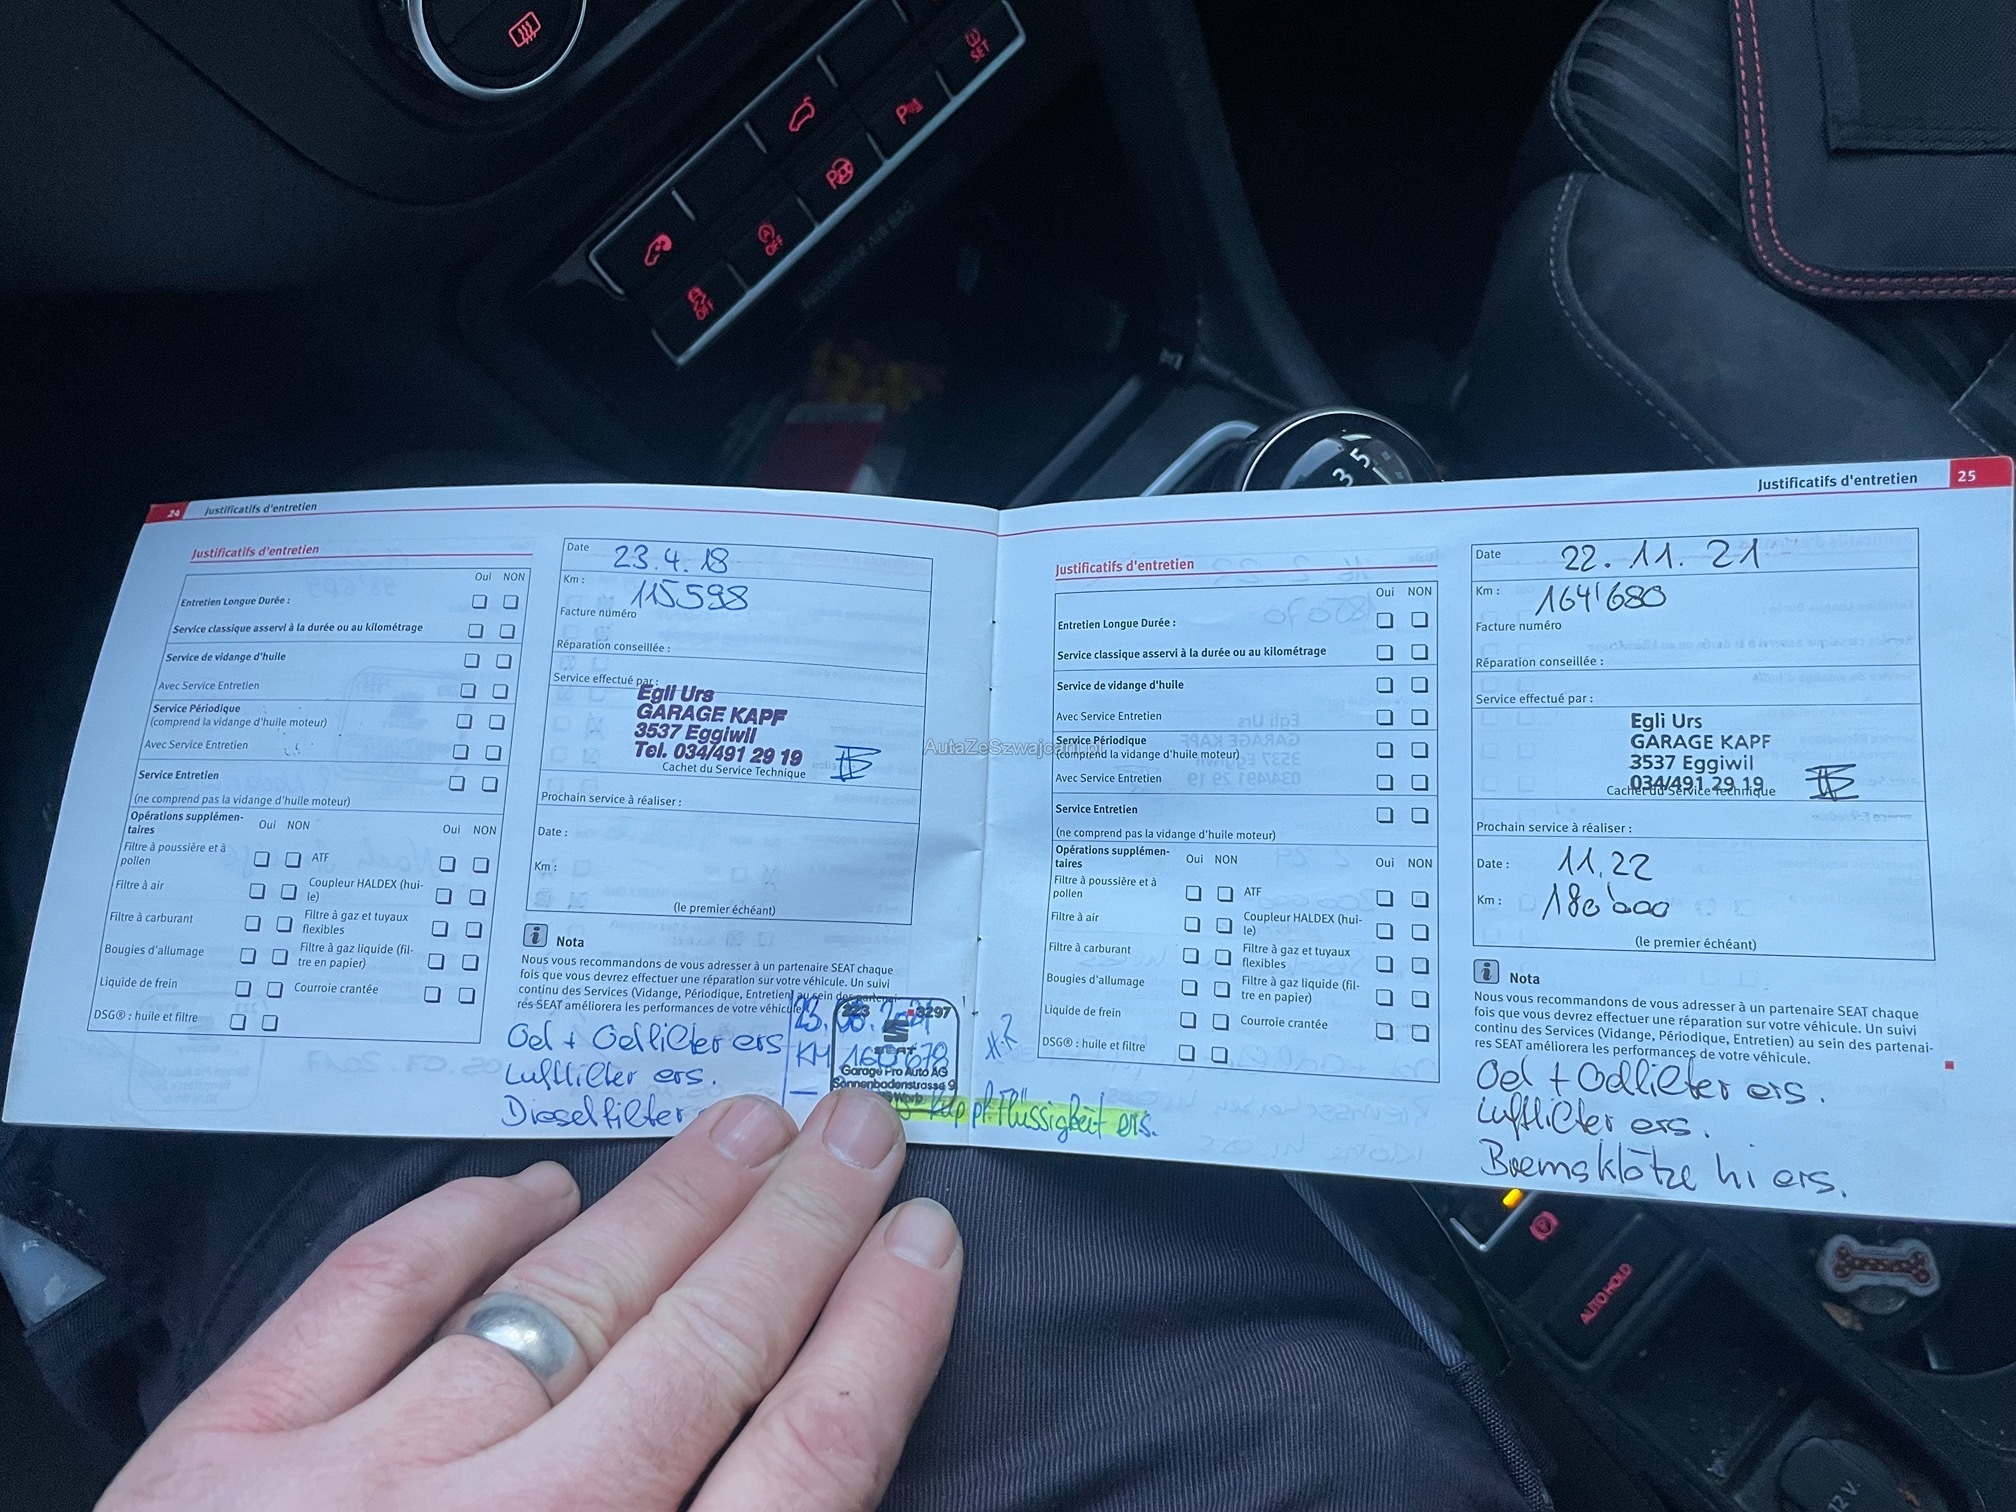 SET
OFF
OFF
PASSENGER AIR BAG
3 5
24 Justificatifs d'entretien
Justificatifs d'entretien
Oui NON
Entretien Longue Durée :
Service classique asservi à la durée ou au kilométrage
Service de vidange d'huile
Avec Service Entretien
Service Périodique
(comprend la vidange d'huile moteur)
Avec Service Entretien
Service Entretien
(ne comprend pas la vidange d'huile moteur)
Opérations supplémen-
taires
Oui NON
Oui NON
Filtre à poussière et à
pollen
ATF
Filtre à air
Coupleur HALDEX (hui-
le)
Filtre à carburant
Filtre à gaz et tuyaux
flexibles
Bougies d'allumage
Filtre à gaz liquide (fil-
tre en papier)
Liquide de frein
Courroie crantée
DSG® : huile et filtre
Date 23.4.18
Km : 115598
Facture numéro
Réparation conseillée :
Service effectué par :
Egli Urs
GARAGE KAPF
3537 Eggiwil
Tel. 034/491 29 19
Cachet du Service Technique
Prochain service à réaliser :
Date :
Km :
(le premier échéant)
i Nota
Nous vous recommandons de vous adresser à un partenaire SEAT chaque
fois que vous devrez effectuer une réparation sur votre véhicule. Un suivi
continu des Services (Vidange, Périodique, Entretien) au sein des partenai-
res SEAT améliorera les performances de votre véhicule.
Oel + Oelfilter ers
Luftfilter ers.
Dieselfilter
KM 160'678
223 3297
SEAT
Garage Pro Auto AG
Sonnenbodenstrasse 9
Worb
Flüssigkeit ers.
AutaZeSzwajcarii.pl
Justificatifs d'entretien 25
Justificatifs d'entretien
Oui NON
Entretien Longue Durée :
Service classique asservi à la durée ou au kilométrage
Service de vidange d'huile
Avec Service Entretien
Service Périodique
(comprend la vidange d'huile moteur)
Avec Service Entretien
Service Entretien
(ne comprend pas la vidange d'huile moteur)
Opérations supplémen-
taires
Oui NON
Oui NON
Filtre à poussière et à
pollen
ATF
Filtre à air
Coupleur HALDEX (hui-
le)
Filtre à carburant
Filtre à gaz et tuyaux
flexibles
Bougies d'allumage
Filtre à gaz liquide (fil-
tre en papier)
Liquide de frein
Courroie crantée
DSG® : huile et filtre
Date 22.11.21
Km : 164'680
Facture numéro
Réparation conseillée :
Service effectué par :
Egli Urs
GARAGE KAPF
3537 Eggiwil
034/491 29 19
Cachet du Service Technique
Prochain service à réaliser :
Date : 11.22
Km : 180'000
(le premier échéant)
i Nota
Nous vous recommandons de vous adresser à un partenaire SEAT chaque
fois que vous devrez effectuer une réparation sur votre véhicule. Un suivi
continu des Services (Vidange, Périodique, Entretien) au sein des partenai-
res SEAT améliorera les performances de votre véhicule.
Oel + Oelfilter ers.
Luftfilter ers.
Bremsklötze hi ers.
AUTO HOLD